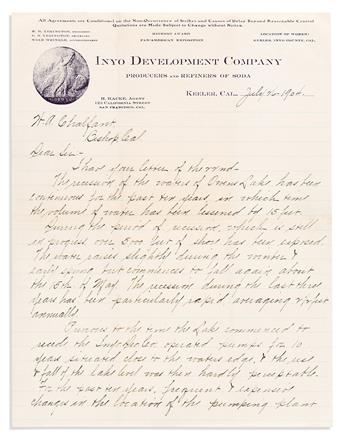 All Agreements are Conditional on the Non-Occurrence of Strikes and Causes of Delay Beyond Reasonable Control
Quotations are Made Subject to Change without Notice.
HIGHEST AWARD
PAN-AMERICAN EXPOSITION
LOCATION OF WORKS:
KEELER, INYO COUNTY, CAL.
INYO DEVELOPMENT COMPANY
PRODUCERS AND REFINERS OF SODA
H. HACKE, AGENT
123 CALIFORNIA STREET
SAN FRANCISCO, CAL.
KEELER, CAL. July 26 1904
W. A. Chalfant,
Bishop Cal
Dear Sir:-
I have your letter of the 22nd-
The recession of the waters of Owens Lake has been
continuous for the past ten years, in which time
the volume of water has been lessened by 15 feet.
During the period of recession, which is still
in progress over 500 feet of shore has been exposed.
The water raises slightly during the winter &
early spring but commences to fall again about
the 15th of May. The recession during the last three
years has been particularly rapid averaging feet
annually.
Previous to the time the Lake commenced to
recede the operated pumps for 10
years, situated close to the waters edge, & the rise
& fall of the lake level was then hardly perceptable.
For the past ten years, frequent & expensive
changes in the location of the pumping plant